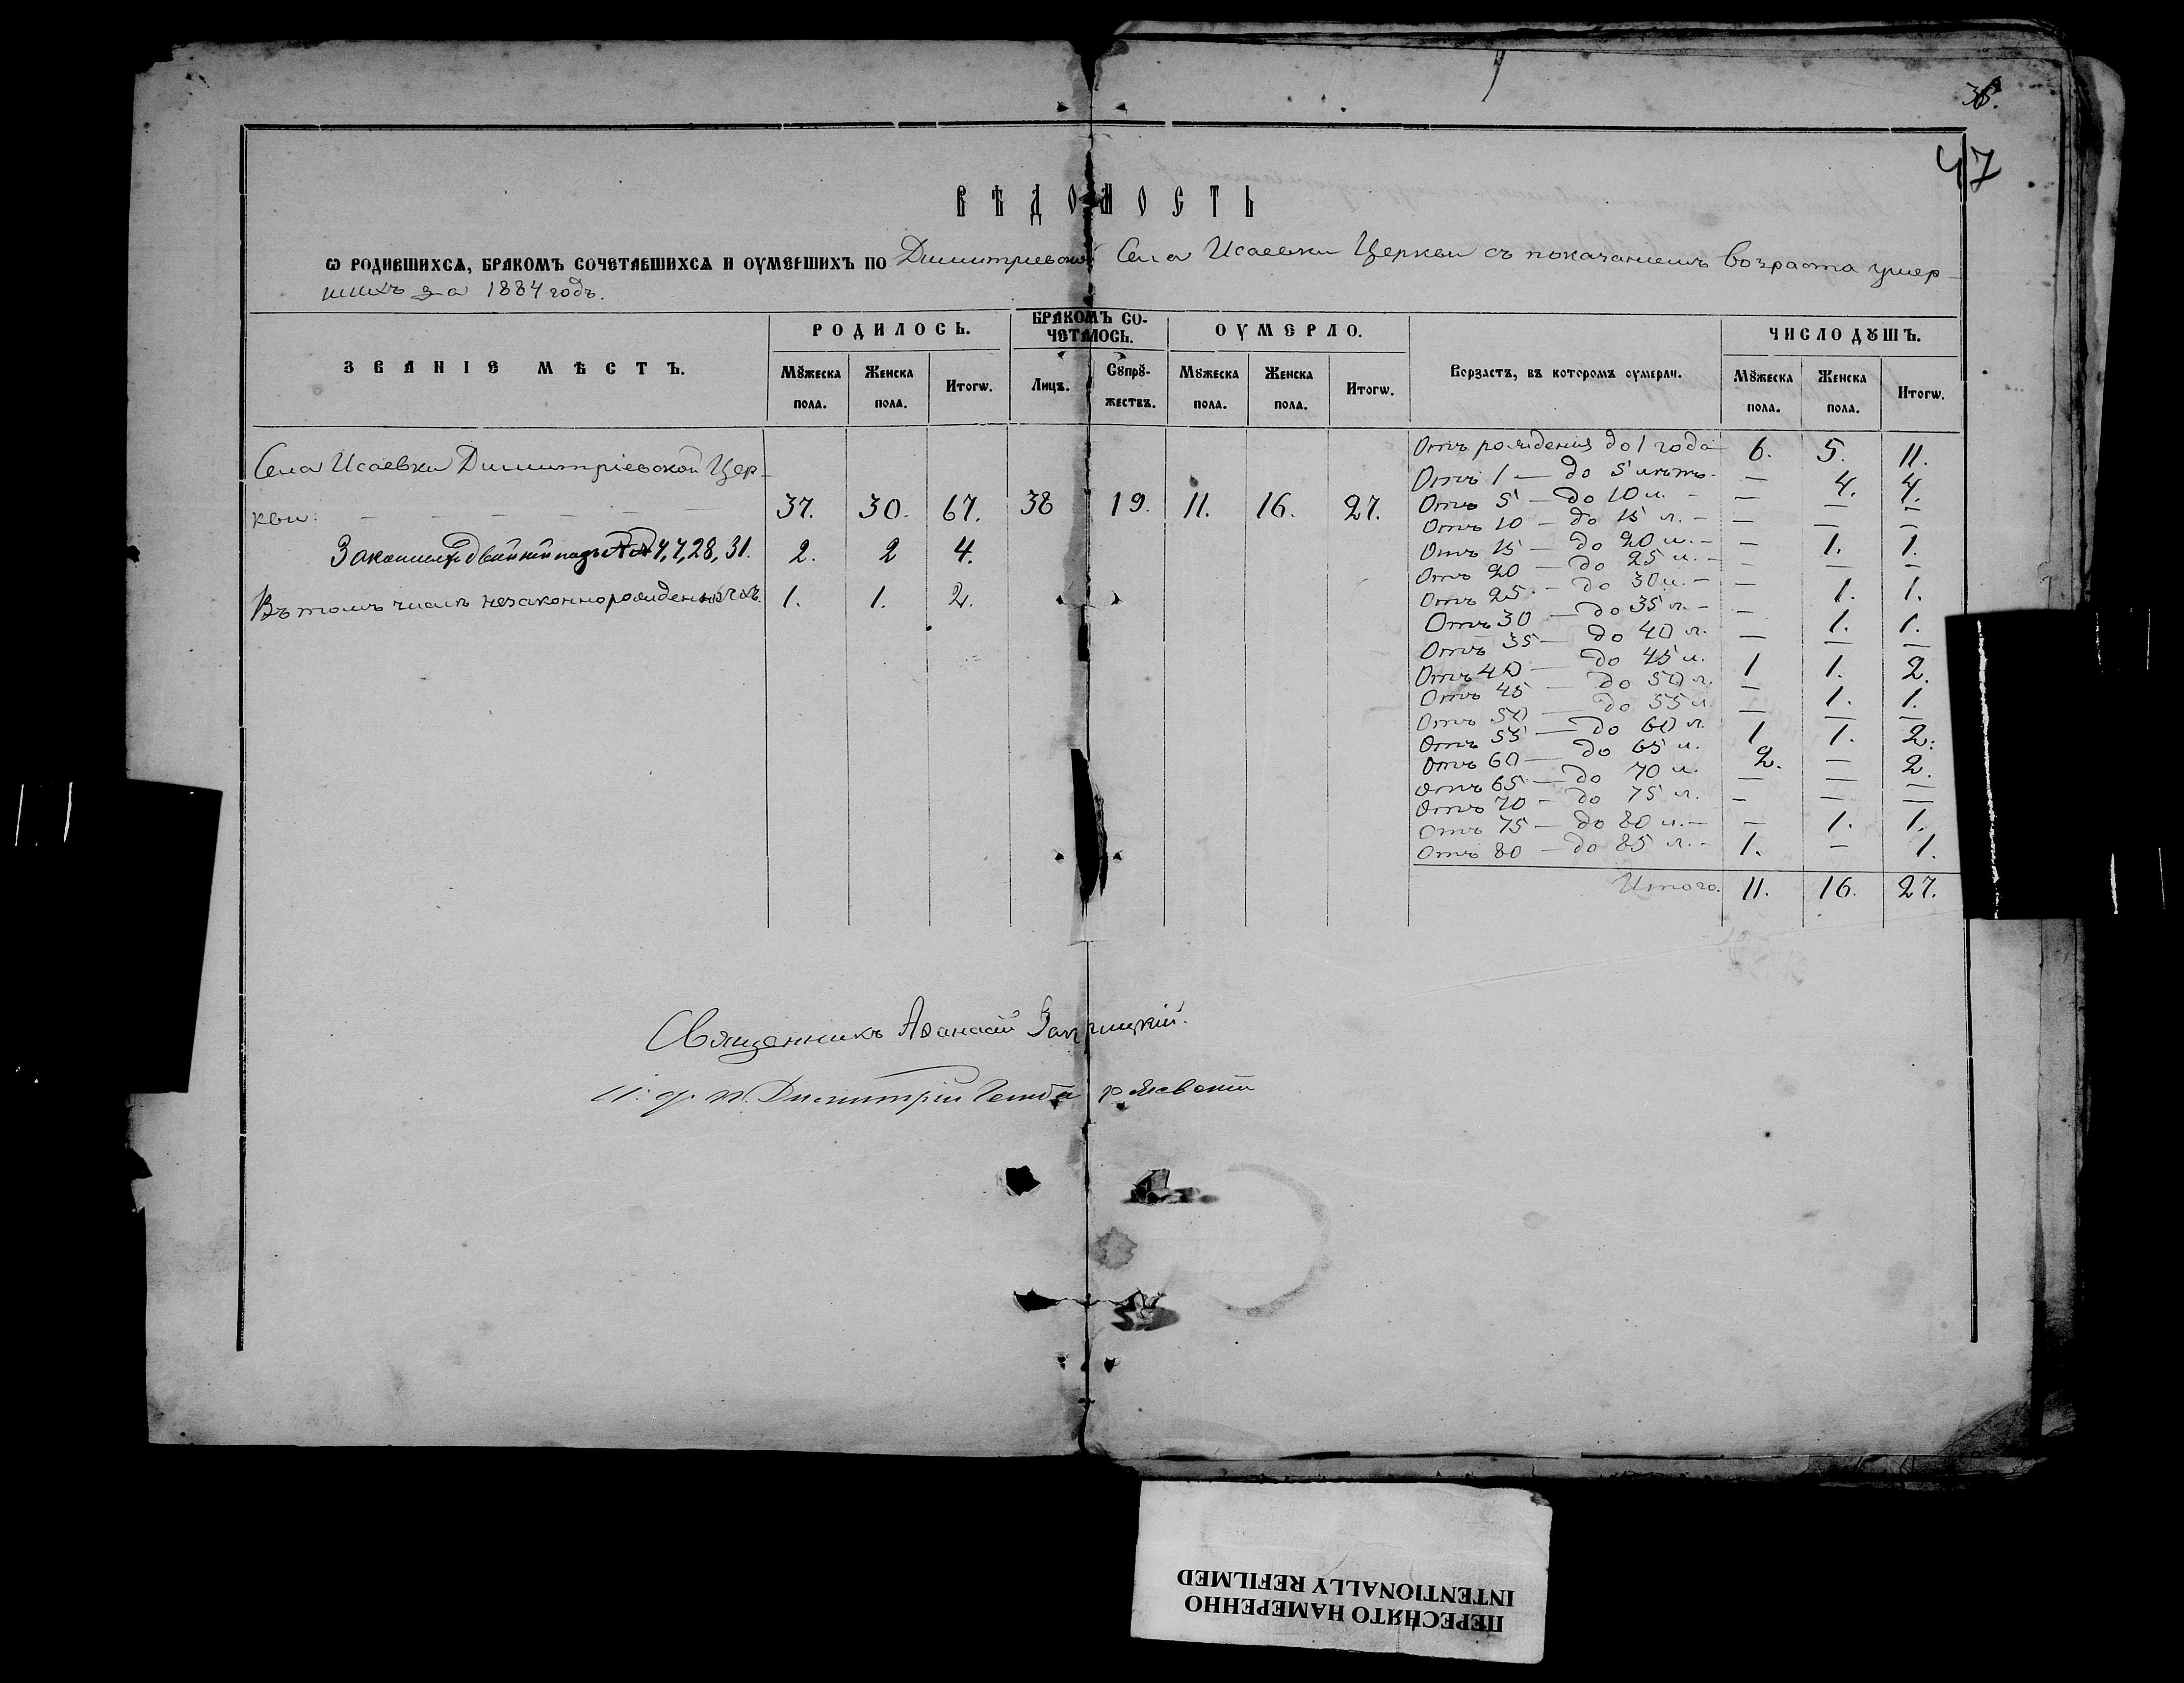 38.
47
ВѢДОМОСТЬ
Ѡ РОДИВШИХСѦ, БРАКОМЪ СОЧЕТАВШИХСѦ И ОУМЕРШИХЪ ПО Димитріевской Села Исаевки Церкви съ показаніемъ возраста умер-
шихъ за 1884 годъ.
ЗВАНІЕ МѢСТЪ. РОДИЛОСЬ. БРАКОМЪ СО-ЧЕТАЛОСЬ. ОУМЕРЛО. Возрастъ, въ которомъ оумерли. ЧИСЛО ДꙊШЪ.
Мꙋжеска пола. Женска пола. Итогѡ. Лицъ. Сꙋпрꙋ-жествъ. Мꙋжеска пола. Женска пола. Итогѡ. Мꙋжеска пола. Женска пола. Итогѡ.
Села Исаевки Димитріевской Цер-
кви. — — — — — — 37. 30. 67. 38 19. 11. 16. 27.
Законныхъ двойни подъ №№ 4, 7, 28, 31. 2. 2 4.
Въ томъ числѣ незаконнорожденныхъ. 1. 1. 2.
Отъ рожденія до 1 года 6. 5. 11.
Отъ 1 — до 5 лѣтъ — 4. 4.
Отъ 5 — до 10 л. — — — —
Отъ 10 — до 15 л. — — — —
Отъ 15 — до 20 л. — — 1. 1.
Отъ 20 — до 25 л. — — — —
Отъ 25 — до 30 л. — — 1. 1.
Отъ 30 — до 35 л. — — 1. 1.
Отъ 35 — до 40 л. — — —
Отъ 40 — до 45 л. 1 1. 2.
Отъ 45 — до 50 л. — 1. 1.
Отъ 50 — до 55 л. — — —
Отъ 55 — до 60 л. 1 1. 2.
Отъ 60 — до 65 л. 2. — 2.
Отъ 65 — до 70 л. — — —
Отъ 70 — до 75 л. — — —
Отъ 75 — до 80 л. — — 1. 1.
Отъ 80 — до 85 л. — 1. — 1.
Итого. 11. 16. 27.
Священникъ Аѳанасій
И. д. п. Димитрій
ПЕРЕСНЯТО НАМЕРЕННО
INTENTIONALLY REFILMED